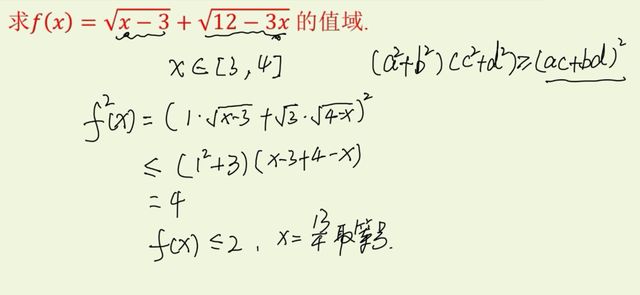 求f(x) = √(x − 3) + √(12 − 3x) 的值域.
x ∈ [3, 4]   (a²+b²)(c²+d²) ≥ (ac+bd)²
f²(x) = (1·√(x-3) + √3·√(4-x))²
≤ (1²+3)(x-3+4-x)
= 4
f(x) ≤ 2, x = 13/4 取等号.